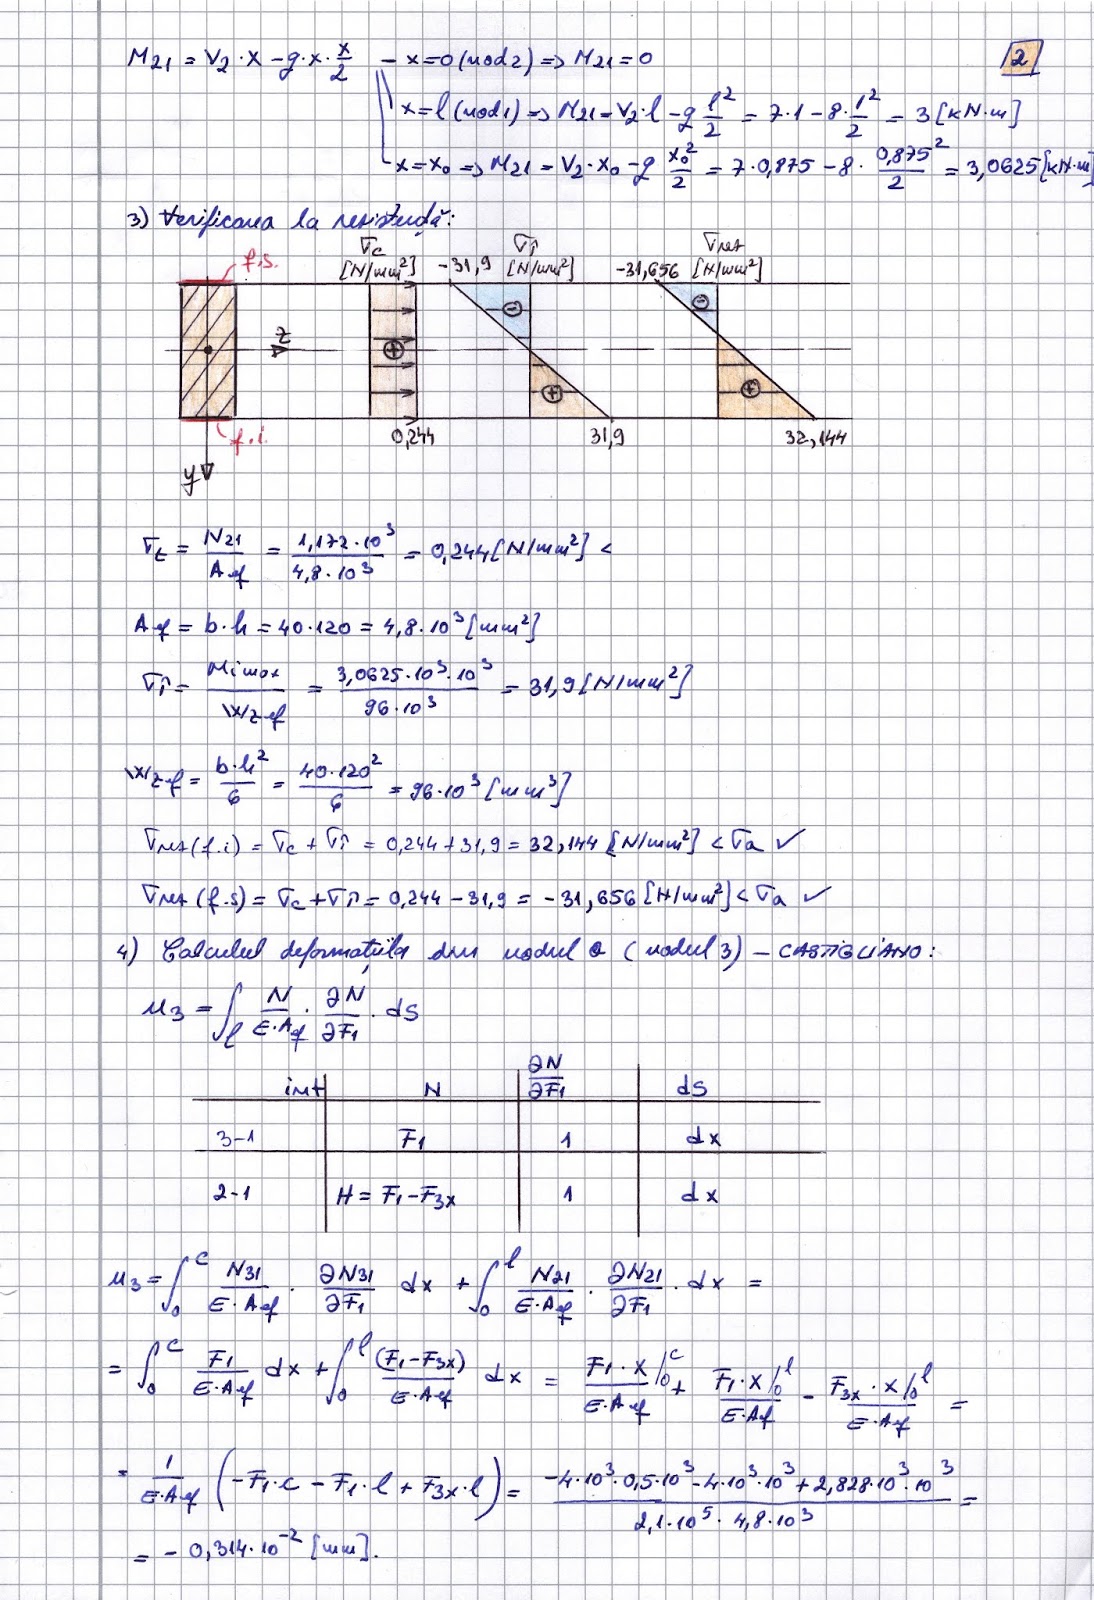 M21 = V2·x - g·x·x/2 - x=0 (nod 2) => M21=0
2
x=l (nod 1) => M21 = V2·l - g l²/2 = 7·1 - 8·1²/2 = 3 [kN·m]
x=x0 => M21 = V2·x0 - g x0²/2 = 7·0,875 - 8·0,875²/2 = 3,0625 [kN·m]
3) Verificarea la rezistență:
f.s.
σc [N/mm²]
-31,9
σî [N/mm²]
-31,656
σrez [N/mm²]
z
+
-
+
-
+
f.i.
0,244
31,9
32,144
y
σt = N21/Aef = 1,172·10³/4,8·10³ = 0,244 [N/mm²] <
Aef = b·h = 40·120 = 4,8·10³ [mm²]
σî = Mimax/Wzef = 3,0625·10³·10³/96·10³ = 31,9 [N/mm²]
Wzef = b·h²/6 = 40·120²/6 = 96·10³ [mm³]
σrez (f.i) = σc + σî = 0,244 + 31,9 = 32,144 [N/mm²] < σa ✓
σrez (f.s) = σc + σî = 0,244 - 31,9 = -31,656 [N/mm²] < σa ✓
4) Calculul deformațiilor din nodul (nodul 3) - CASTIGLIANO:
u3 = ∫l N/E·Aef · ∂N/∂F1 · dS
int N ∂N/∂F1 dS
3-1 F1 1 dx
2-1 H = F1-F3x 1 dx
u3 = ∫0^c N31/E·Aef · ∂N31/∂F1 dx + ∫0^l N21/E·Aef · ∂N21/∂F1 · dx =
= ∫0^c F1/E·Aef dx + ∫0^l (F1-F3x)/E·Aef dx = F1·x/0^c/E·Aef + F1·x/0^l/E·Aef - F3x·x/0^l/E·Aef =
= 1/E·Aef (-F1·c - F1·l + F3x·l) = -4·10³·0,5·10³ - 4·10³·10³ + 2,828·10³·10³/2,1·10⁵·4,8·10³ =
= -0,314·10⁻² [mm].